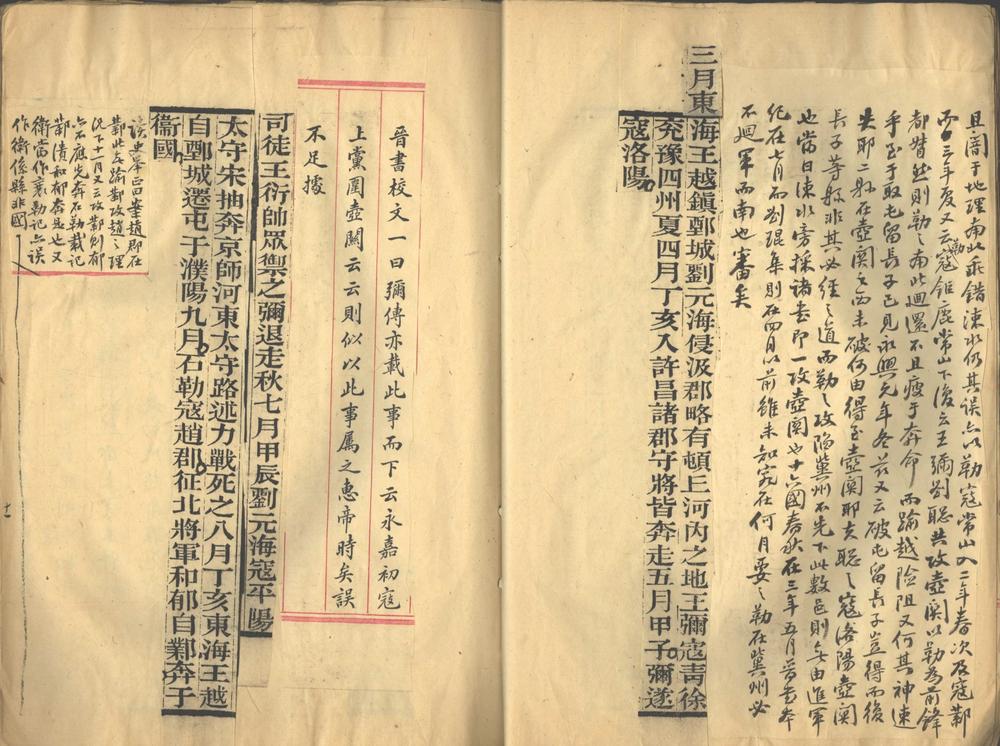 且闇于地理南北乖错涑水仍其误以勒寇常山入二年春次及寇鄴
而三年夏又云勒寇钜鹿常山下复云王彌劉聪共攻壺関以勒為前鋒
都督然则勒之南北迴還不且疲于奔命而踰越险阻又何其神速
乎至于取屯留長子已見永興元年冬兹又云破屯留長子豈得而後
失耶二縣在壺関之西未破何由得至壺関耶夫聪之寇洛陽壺関
長子等縣非其必經之道而勒之攻陷冀州不先下此数邑则無由進軍
也當日涑水旁採诸書即一攻壺関也十六國春秋在三年五月晋書本
纪在七月而劉琨集則在四月以前雖未知究在何月要之勒在冀州必
不迴軍而南也審矣
三月東海王越鎮鄄城劉元海侵汲郡略有頓丘河內之地王彌寇青徐
兗豫四州夏四月丁亥入許昌諸郡守將皆奔走五月甲子彌遂
寇洛陽
晉書校文一曰彌傳亦載此事而下云永嘉初寇
上黨圍壺關云云則似以此事屬之惠帝時矣誤
不足據
司徒王衍帥眾禦之彌退走秋七月甲辰劉元海寇平陽
太守宋抽奔京師河東太守路述力戰死之八月丁亥東海王越
自鄄城遷屯于濮陽九月石勒寇趙郡征北將軍和郁自鄴奔于
衞國
读史舉正曰案趙郡在
鄴北豈踰鄴攻趙之理
况下十一月又云攻鄴则郁
亦不應先奔在勒載記
鄴潰和郁奔是也又
衛當作襄勒記亦误
作衛係縣非國
十一